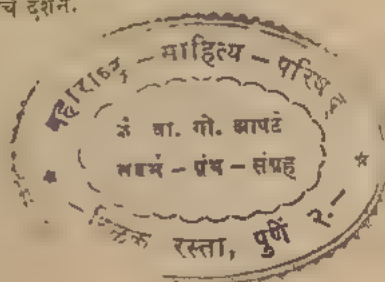 दर्शन.
महाराष्ट्र – साहित्य – परिषद
वा. गो. आपटे
संदर्भ – ग्रंथ – संग्रह
टिळक रस्ता, पुणें २.